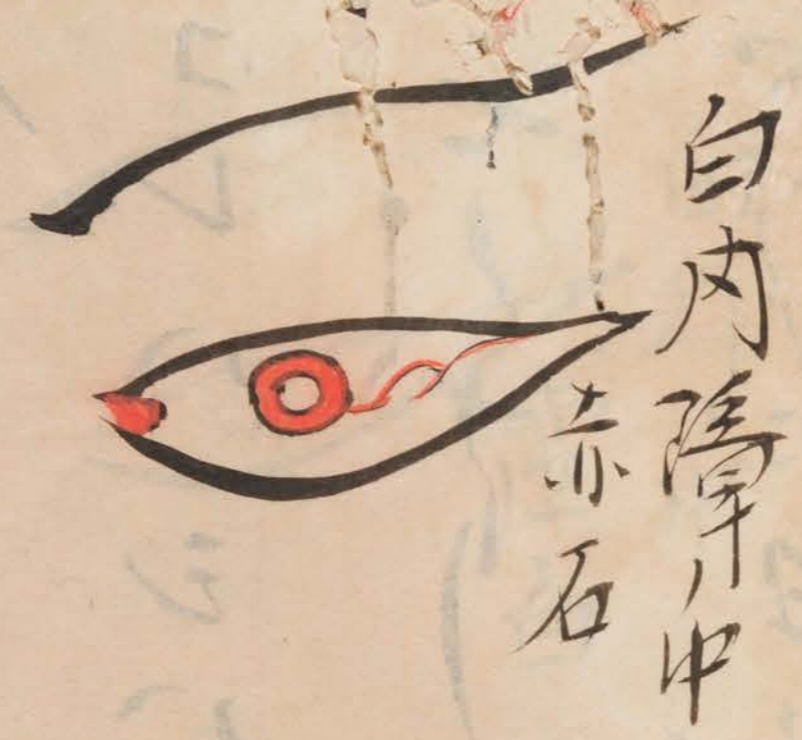 白内障ノ中
赤石